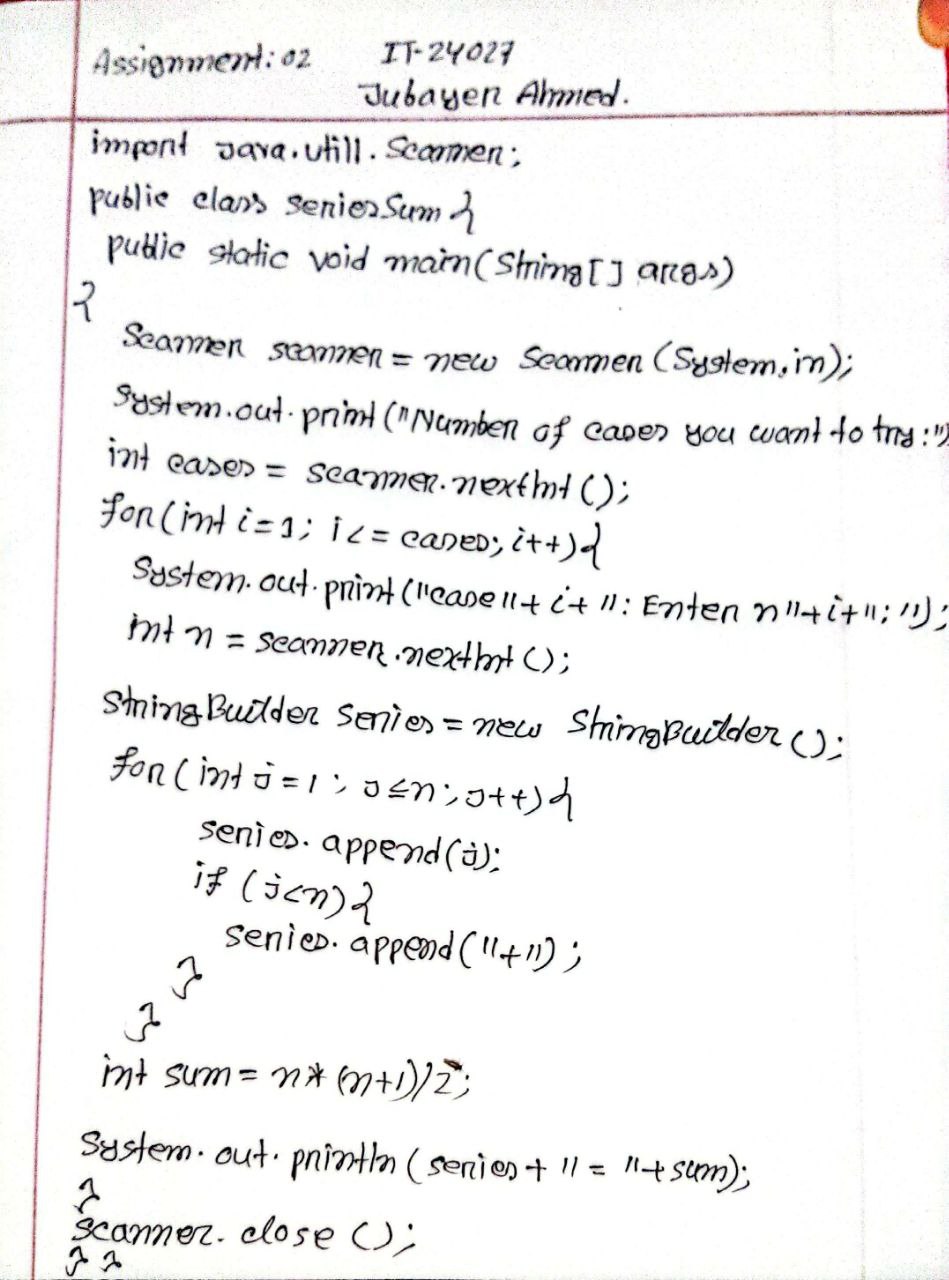 Assignment: 02 IT-24027
Jubayer Ahmed.
import java.utill.Scanner;
public class seriesSum {
public static void main(String[] args)
{
Scanner scanner = new Scanner (System.in);
System.out.print("Number of cases you want to try:")
int cases = scanner.nextInt ();
for(int i=1; i<= cases; i++){
System.out.print("case"+i+": Enter n"+i+"; ");
int n = scanner.nextInt ();
StringBuilder series = new StringBuilder ();
for(int j=1; j≤n; j++){
series.append(j);
if (j<n){
series.append("+");
}
}
int sum = n* (n+1)/2;
System.out.println (series + " = "+sum);
}
scanner.close ();
} }